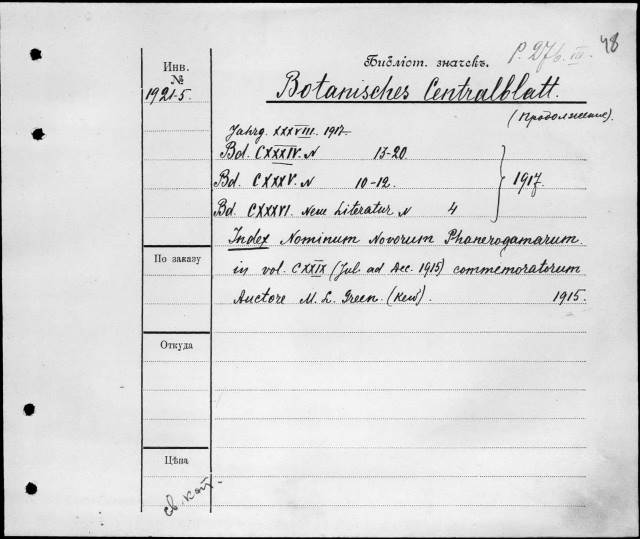 Р. 276. III. 48
Библіот. значекъ.
Инв.
№
1921-5.
Botanisches Centralblatt.
(Продолжение)
Jahrg. XXXVIII. 1917.
Bd. CXXXIV. N 13-20
Bd. CXXXV. N 10-12.
1917.
Bd CXXXVI. Neue Literatur N 4
Index Nominum Novorum Phanerogamarum.
in vol. CXXIX (Jul. ad Dec. 1915) commemoratorum
Auctore M. L. Green. (Kew). 1915.
По заказу
Откуда
Цѣна
св. кат.